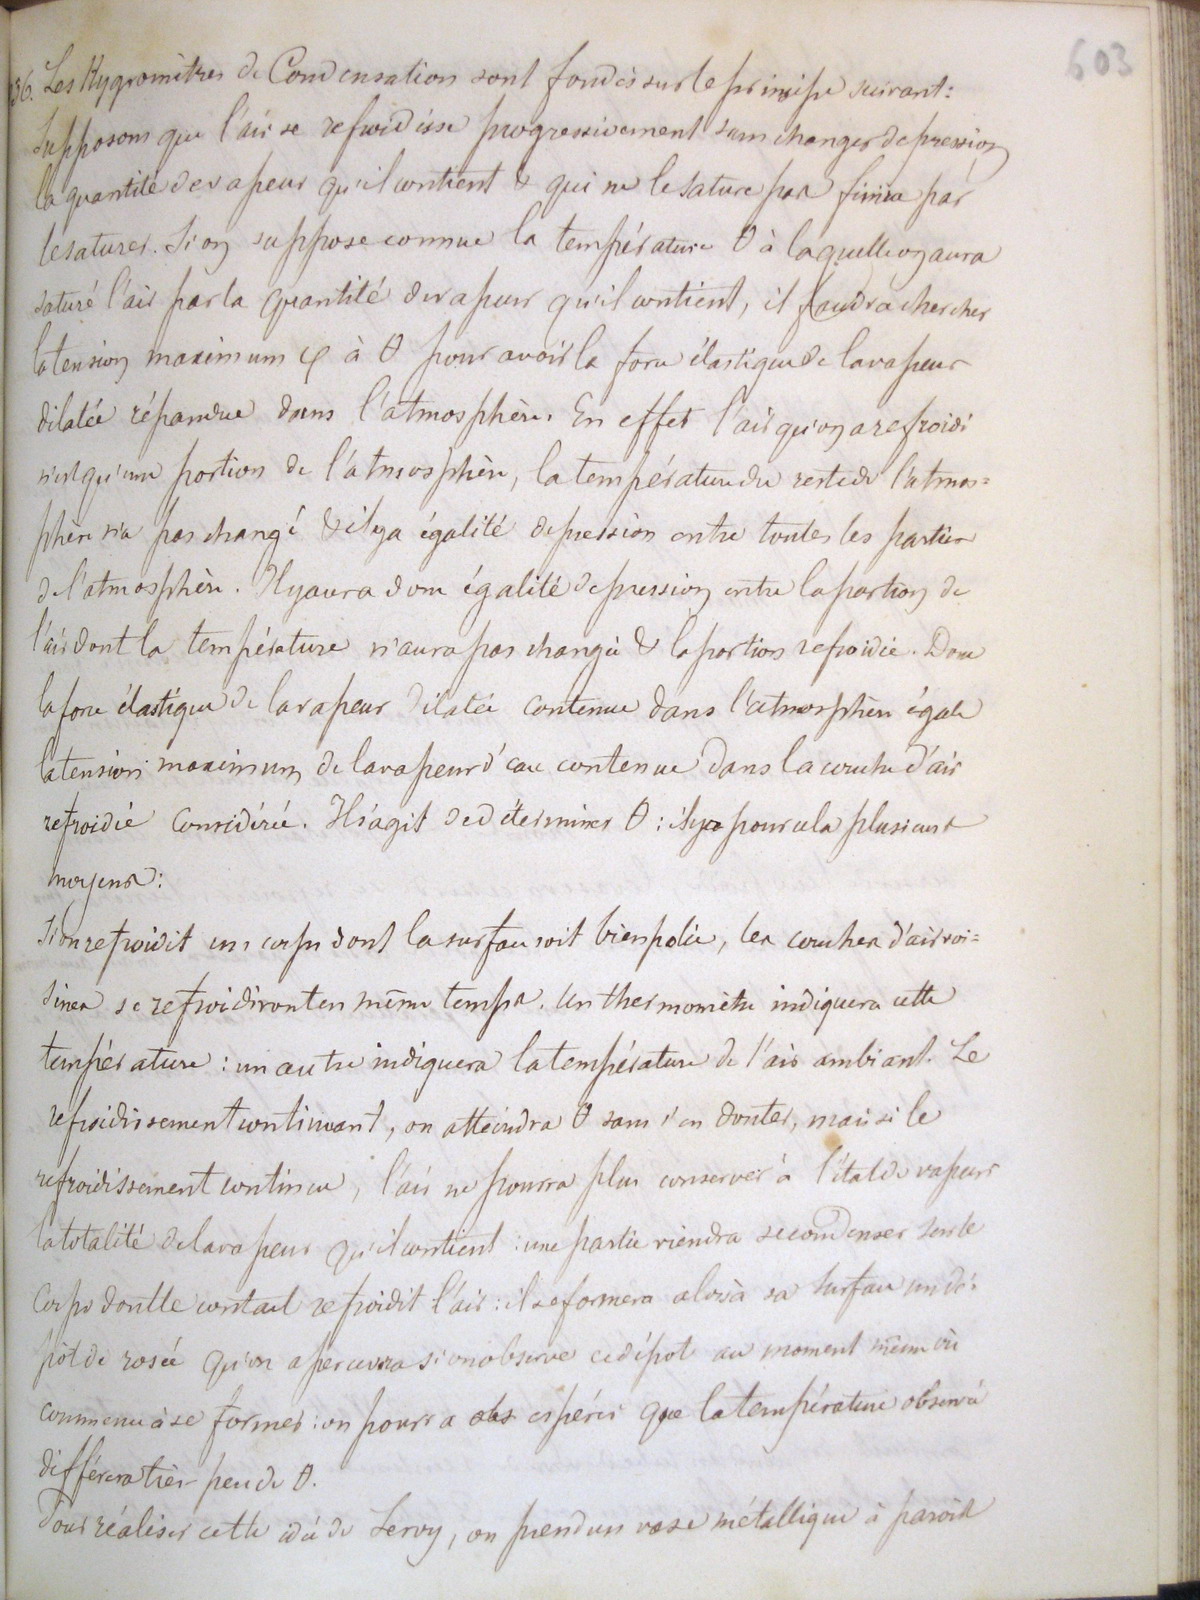 603
136. Les Hygromètres de Condensation sont fondés sur le principe suivant:
Supposons que l'air se refroidisse progressivement sans changer de pression
la quantité de vapeur qu'il contient & qui ne le sature pas finira par
le saturer. Si on suppose connue la température θ à laquelle on aura
saturé l'air par la quantité de vapeur qu'il contient, il faudra chercher
la tension maximum φ à θ pour avoir la force élastique de la vapeur
dilatée répandue dans l'atmosphère. En effet l'air qu'on a refroidi
n'est qu'une portion de l'atmosphère, la température du reste de l'atmos=
phère n'a pas changé & il y a égalité de pression entre toutes les parties
de l'atmosphère. Il y aura donc égalité de pression entre la portion de
l'air dont la température n'aura pas changé & la portion refroidie. Donc
la force élastique de la vapeur dilatée contenue dans l'atmosphère égale
la tension maximum de la vapeur d'eau contenue dans la couche d'air
refroidie considérée. Il s'agit de déterminer θ : il y a pour cela plusieurs
moyens:
Si on refroidit un corps dont la surface soit bien polie, les couches d'air voi=
sines se refroidiront en même temps. Un thermomètre indiquera cette
température : un autre indiquera la température de l'air ambiant. Le
refroidissement continuant, on atteindra θ sans s'en douter, mais si le
refroidissement continue, l'air ne pourra plus conserver à l'état de vapeur
la totalité de la vapeur qu'il contient : une partie viendra se condenser sur le
corps dont le contact refroidit l'air : il se formera alors à sa surface un dé=
pôt de rosée qu'on apercevra si on observe ce dépôt au moment même où
commence à se former : on pourra espérer que la température observée
différera très peu de θ.
Pour réaliser cette idée de Leroy, on prend un vase métallique à parois